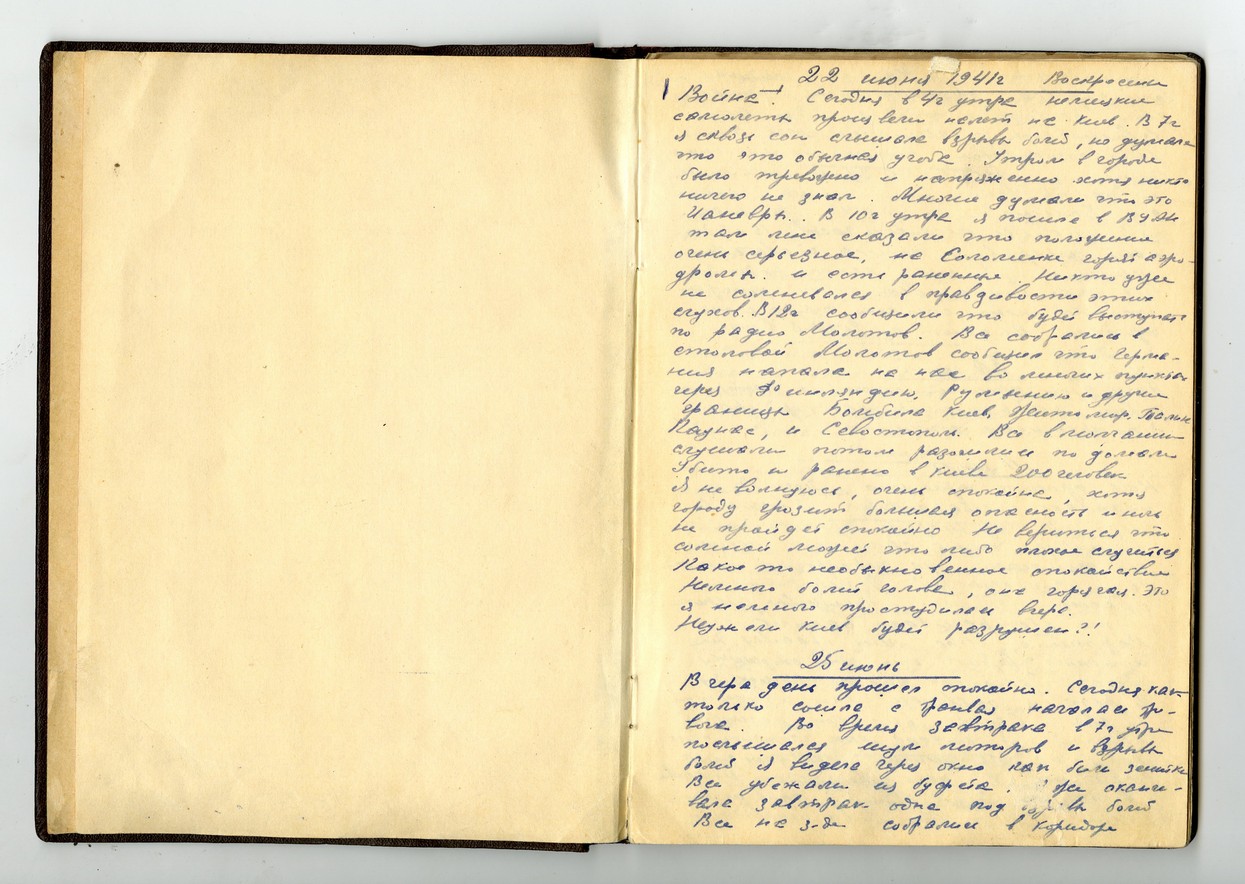 22 июня 1941г Воскресение
Война! Сегодня в 4ч утра немецкие
самолеты произвели налет на Киев. В 7ч
я сквозь сон слышала взрывы бомб, но думала
что это обычная учеба. Утром в городе
было тревожно и напряженно хотя никто
ничего не знал. Многие думали что это
маневры. В 10ч утра я пошла в ВУАН
там мне сказали что положение
очень серьезное, на Соломенке горят аэро-
дромы. и есть раненные. Никто уже
не сомневался в правдивости этих
слухов. В 12ч сообщили что будет выступать
по радио Молотов. Все собрались в
столовой Молотов сообщил что Герма-
ния напала на нас во многих пунктах
через Финляндию, Румынию и другие
границы Бомбила Киев, Житомир, Талин
Каунас, и Севостополь. Все в молчании
слушали потом разошлись по домам
Убито и ранено в Киеве 200 человек
Я не волнуюсь, очень спокойна, хотя
городу грозит большая опасность и ночь
не пройдет спокойно Не вериться что
сомной может что либо плохое случиться
Какое то необыкновенное спокойствие
Немного болит голова, она горячая. Это
я немного простудилась вчера.
Неужели Киев будет разрушен?!
25 июнь
Вчера день прошел спокойно. Сегодня как
только сошла с трамвая началась тре-
вога. Во время завтрака в 7ч утра
послышался шум моторов и взрывы
бомб Я видела через окно как били зенитки
Все убежали из буфета. Я оканчи-
вала завтрак одна под взрывы бомб
Все на з-де собрались в коридоре